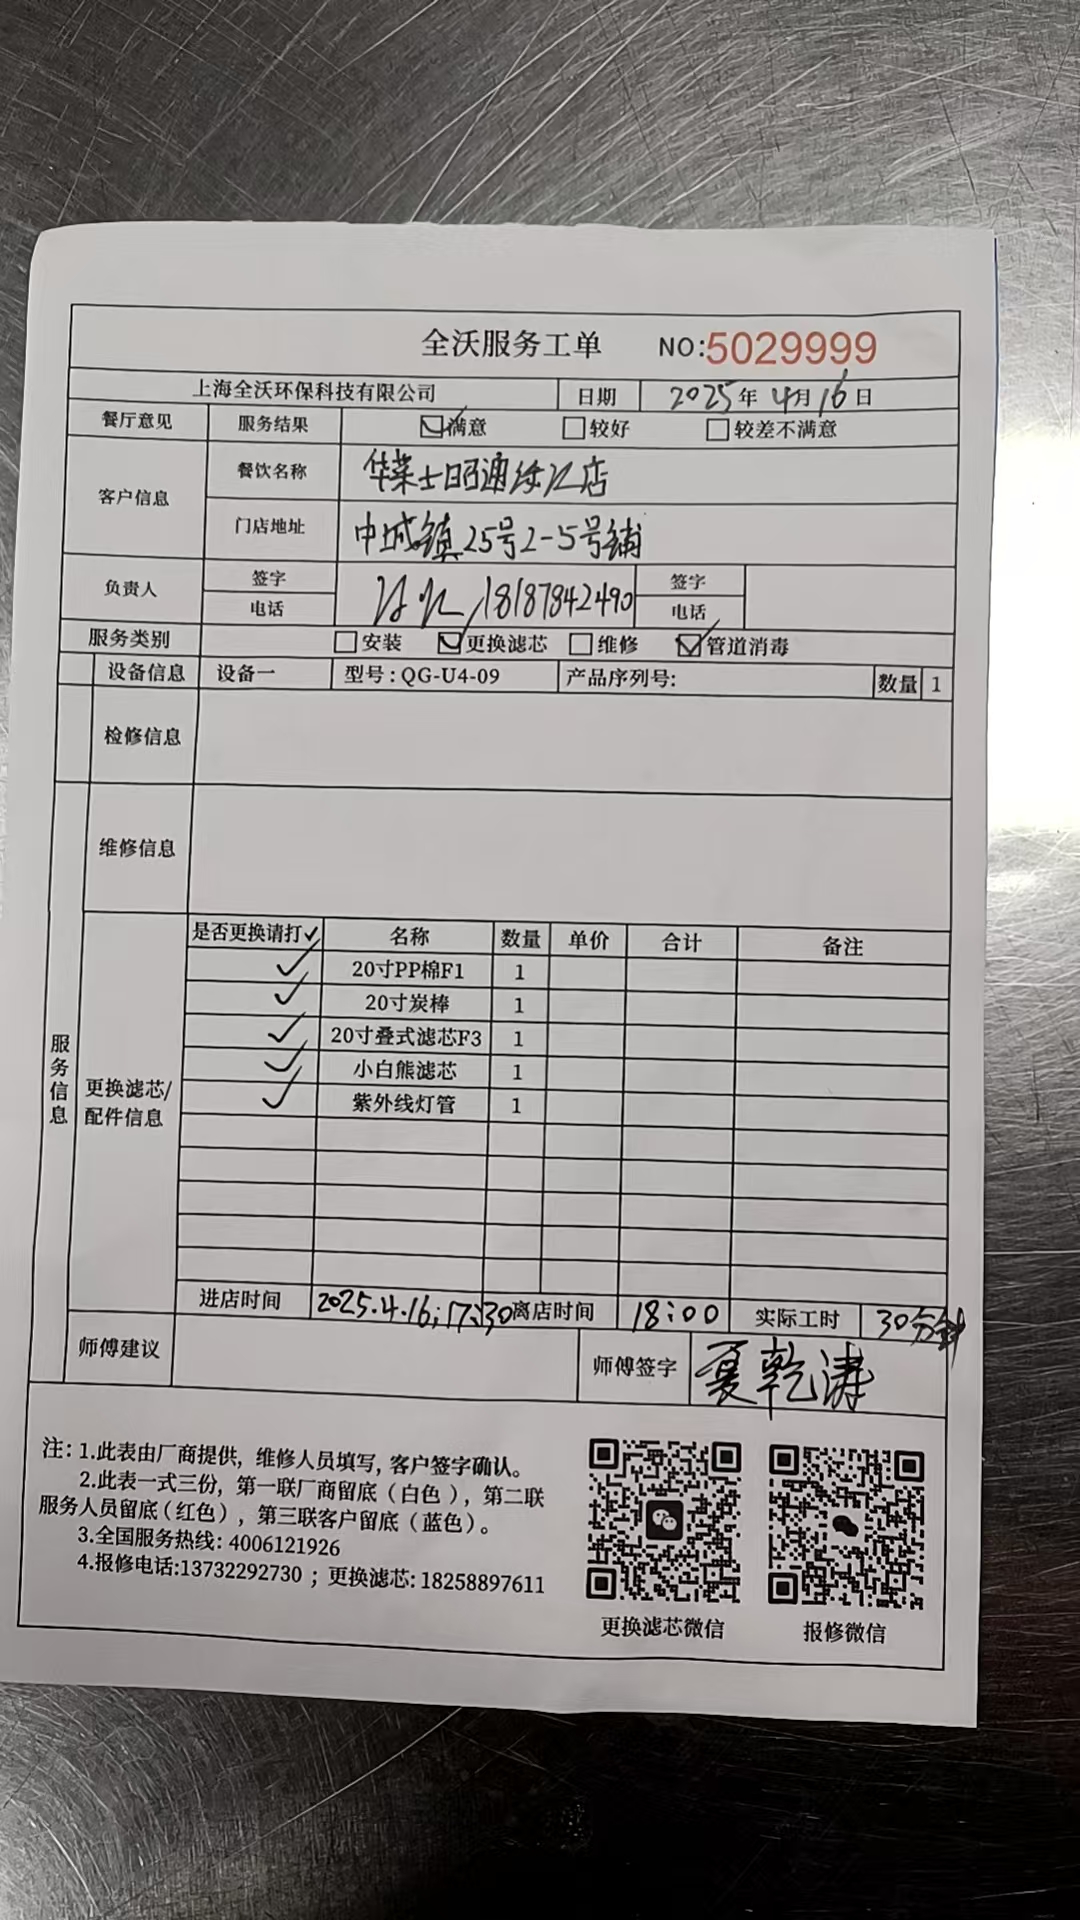 全沃服务工单 NO:5029999
上海全沃环保科技有限公司 日期 2025年 4月16日
餐厅意见 服务结果 满意 较好 较差不满意
客户信息 餐饮名称 华莱士昭通绥江店
门店地址 中城镇25号2-5号铺
负责人 签字 签字
电话 18187842490 电话
服务类别 安装 更换滤芯 维修 管道消毒
设备信息 设备一 型号:QG-U4-09 产品序列号: 数量 1
检修信息
维修信息
服务信息
更换滤芯/
配件信息
是否更换请打✓ 名称 数量 单价 合计 备注
✓ 20寸PP棉F1 1
✓ 20寸炭棒 1
✓ 20寸叠式滤芯F3 1
✓ 小白熊滤芯 1
✓ 紫外线灯管 1
进店时间 2025.4.16;17:30 离店时间 18:00 实际工时 30分钟
师傅建议 师傅签字 夏乾涛
注: 1.此表由厂商提供, 维修人员填写, 客户签字确认。
2.此表一式三份, 第一联厂商留底(白色), 第二联
服务人员留底(红色), 第三联客户留底(蓝色)。
3.全国服务热线: 4006121926
4.报修电话:13732292730 ; 更换滤芯: 18258897611
更换滤芯微信 报修微信